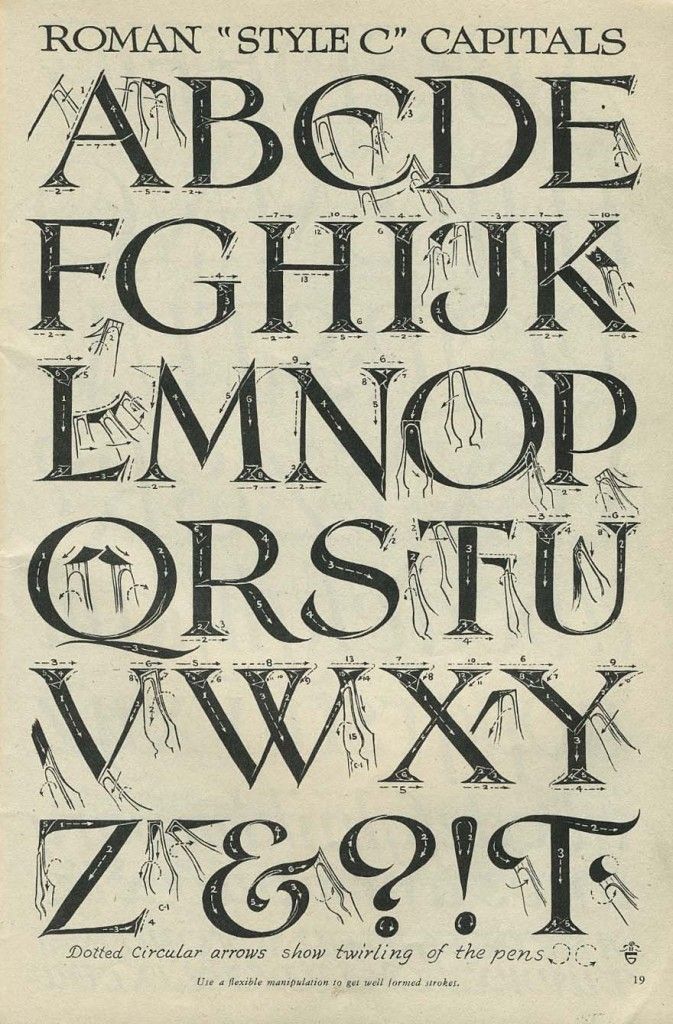 ROMAN "STYLE C" CAPITALS
ABCDE
FGHIJK
LMNOP
QRSTU
VWXY
Z&?!T
Dotted Circular arrows show twirling of the pens
Use a flexible manipulation to get well formed strokes.
19